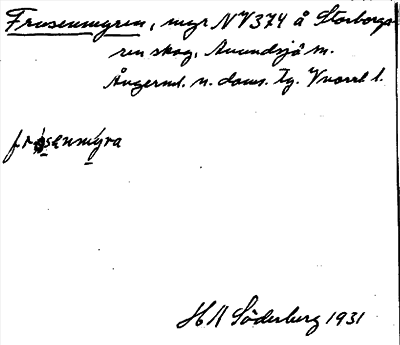 Frosenmyren, myr NV374 å Storborgs-
ren skog, Anundsjö sn.
Ångerml. n. doms. tg. Vnorrl l.
frosenmyra
H A Söderberg 1931